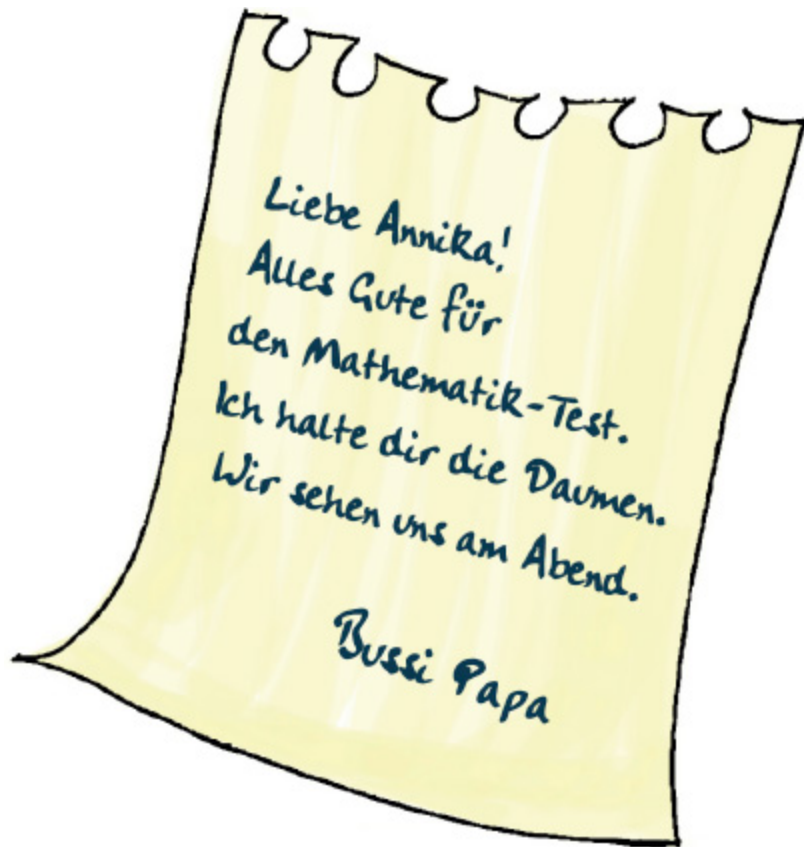 Liebe Annika!
Alles Gute für
den Mathematik-Test.
Ich halte dir die Daumen.
Wir sehen uns am Abend.
Bussi Papa